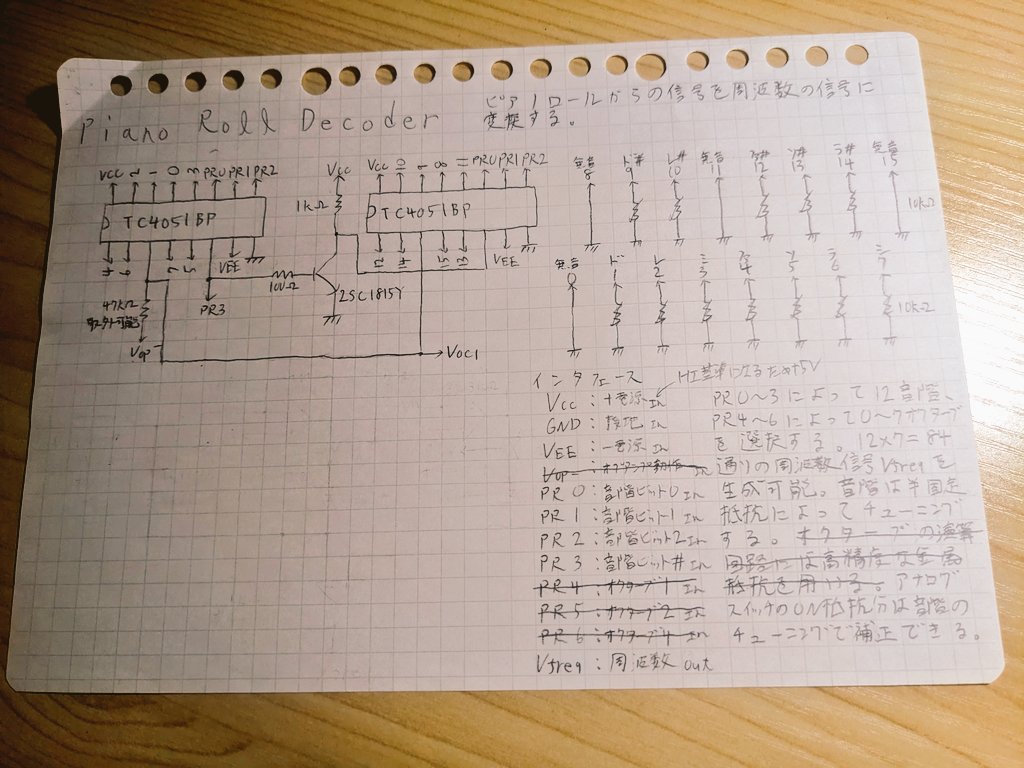 Piano Roll Decoder
ピアノロールからの信号を周波数の信号に
変換する。
VCC 2 1 0 3 PR0 PR1 PR2
TC4051BP
4 6 7 5 VEE
47kΩ
Vop
PR3
100Ω
2SC1815Y
1kΩ
Vcc
VCC 10 9 8 11 PR0 PR1 PR2
TC4051BP
12 14 15 13 VEE
VOC1
発音 8
ド# 9
レ# 10
発音 11
ファ# 12
ソ# 13
ラ# 14
発音 15
10kΩ
発音 0
ド 1
レ 2
ミ 3
ファ 4
ソ 5
ラ 6
シ 7
10kΩ
インタフェース
Vcc : +電源 In
GND : 接地 In
VEE : -電源 In
Vop : In
PR 0 : 音階ビット0 In
PR 1 : 音階ビット1 In
PR 2 : 音階ビット2 In
PR 3 : 音階ビット# In
PR 4 : オクターブ1 In
PR 5 : オクターブ2 In
PR 6 : オクターブ4 In
Vfreq : 周波数 out
PR0~3によって12音階、
PR4~6によって0~7オクターブ
を選択する。12×7=84
通りの周波数信号Vfreqを
生成可能。音階は半固定
抵抗によってチューニング
する。オクターブの演算
回路には高精度な金属
抵抗を用いる。アナログ
スイッチのON抵抗分は音階の
チューニングで補正できる。